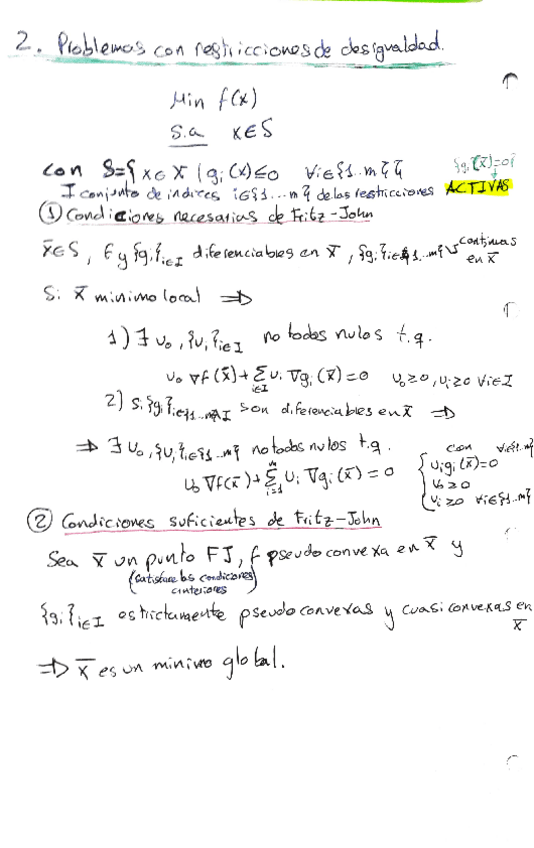 2. Problemas con restricciones de desigualdad.
Min f(x)
s.a x∈S
con S={x∈X | gi(x)≤0 ∀i∈{1...m}} {gi(x̄)=0}
I conjunto de indices i∈{1...m} de las restricciones ACTIVAS
① Condiciones necesarias de Fritz-John
x̄∈S, f y {gi}i∈I diferenciables en x̄, {gi}i∈{1...m}\I continuas en x̄
Si x̄ minimo local ⇒
1) ∃ u₀, {ui}i∈I no todos nulos t.q.
u₀ ∇f(x̄)+ Σi∈I ui ∇gi(x̄)=0 u₀≥0, ui≥0 ∀i∈I
2) si {gi}i∈{1...m}\I son diferenciables en x̄ ⇒
⇒ ∃ u₀, {ui}i∈{1...m} no todos nulos t.q.
u₀ ∇f(x̄)+ Σᵐi=1 ui ∇gi(x̄) = 0
con ∀i∈{1..m}
{ uigi(x̄)=0
u₀≥0
ui≥0 ∀i∈{1..m}
② Condiciones suficientes de Fritz-John
Sea x̄ un punto FJ, f pseudoconvexa en x̄ y
(satisface las condiciones
anteriores)
{gi}i∈I estrictamente pseudoconvexas y cuasiconvexas en x̄
⇒ x̄ es un minimo global.